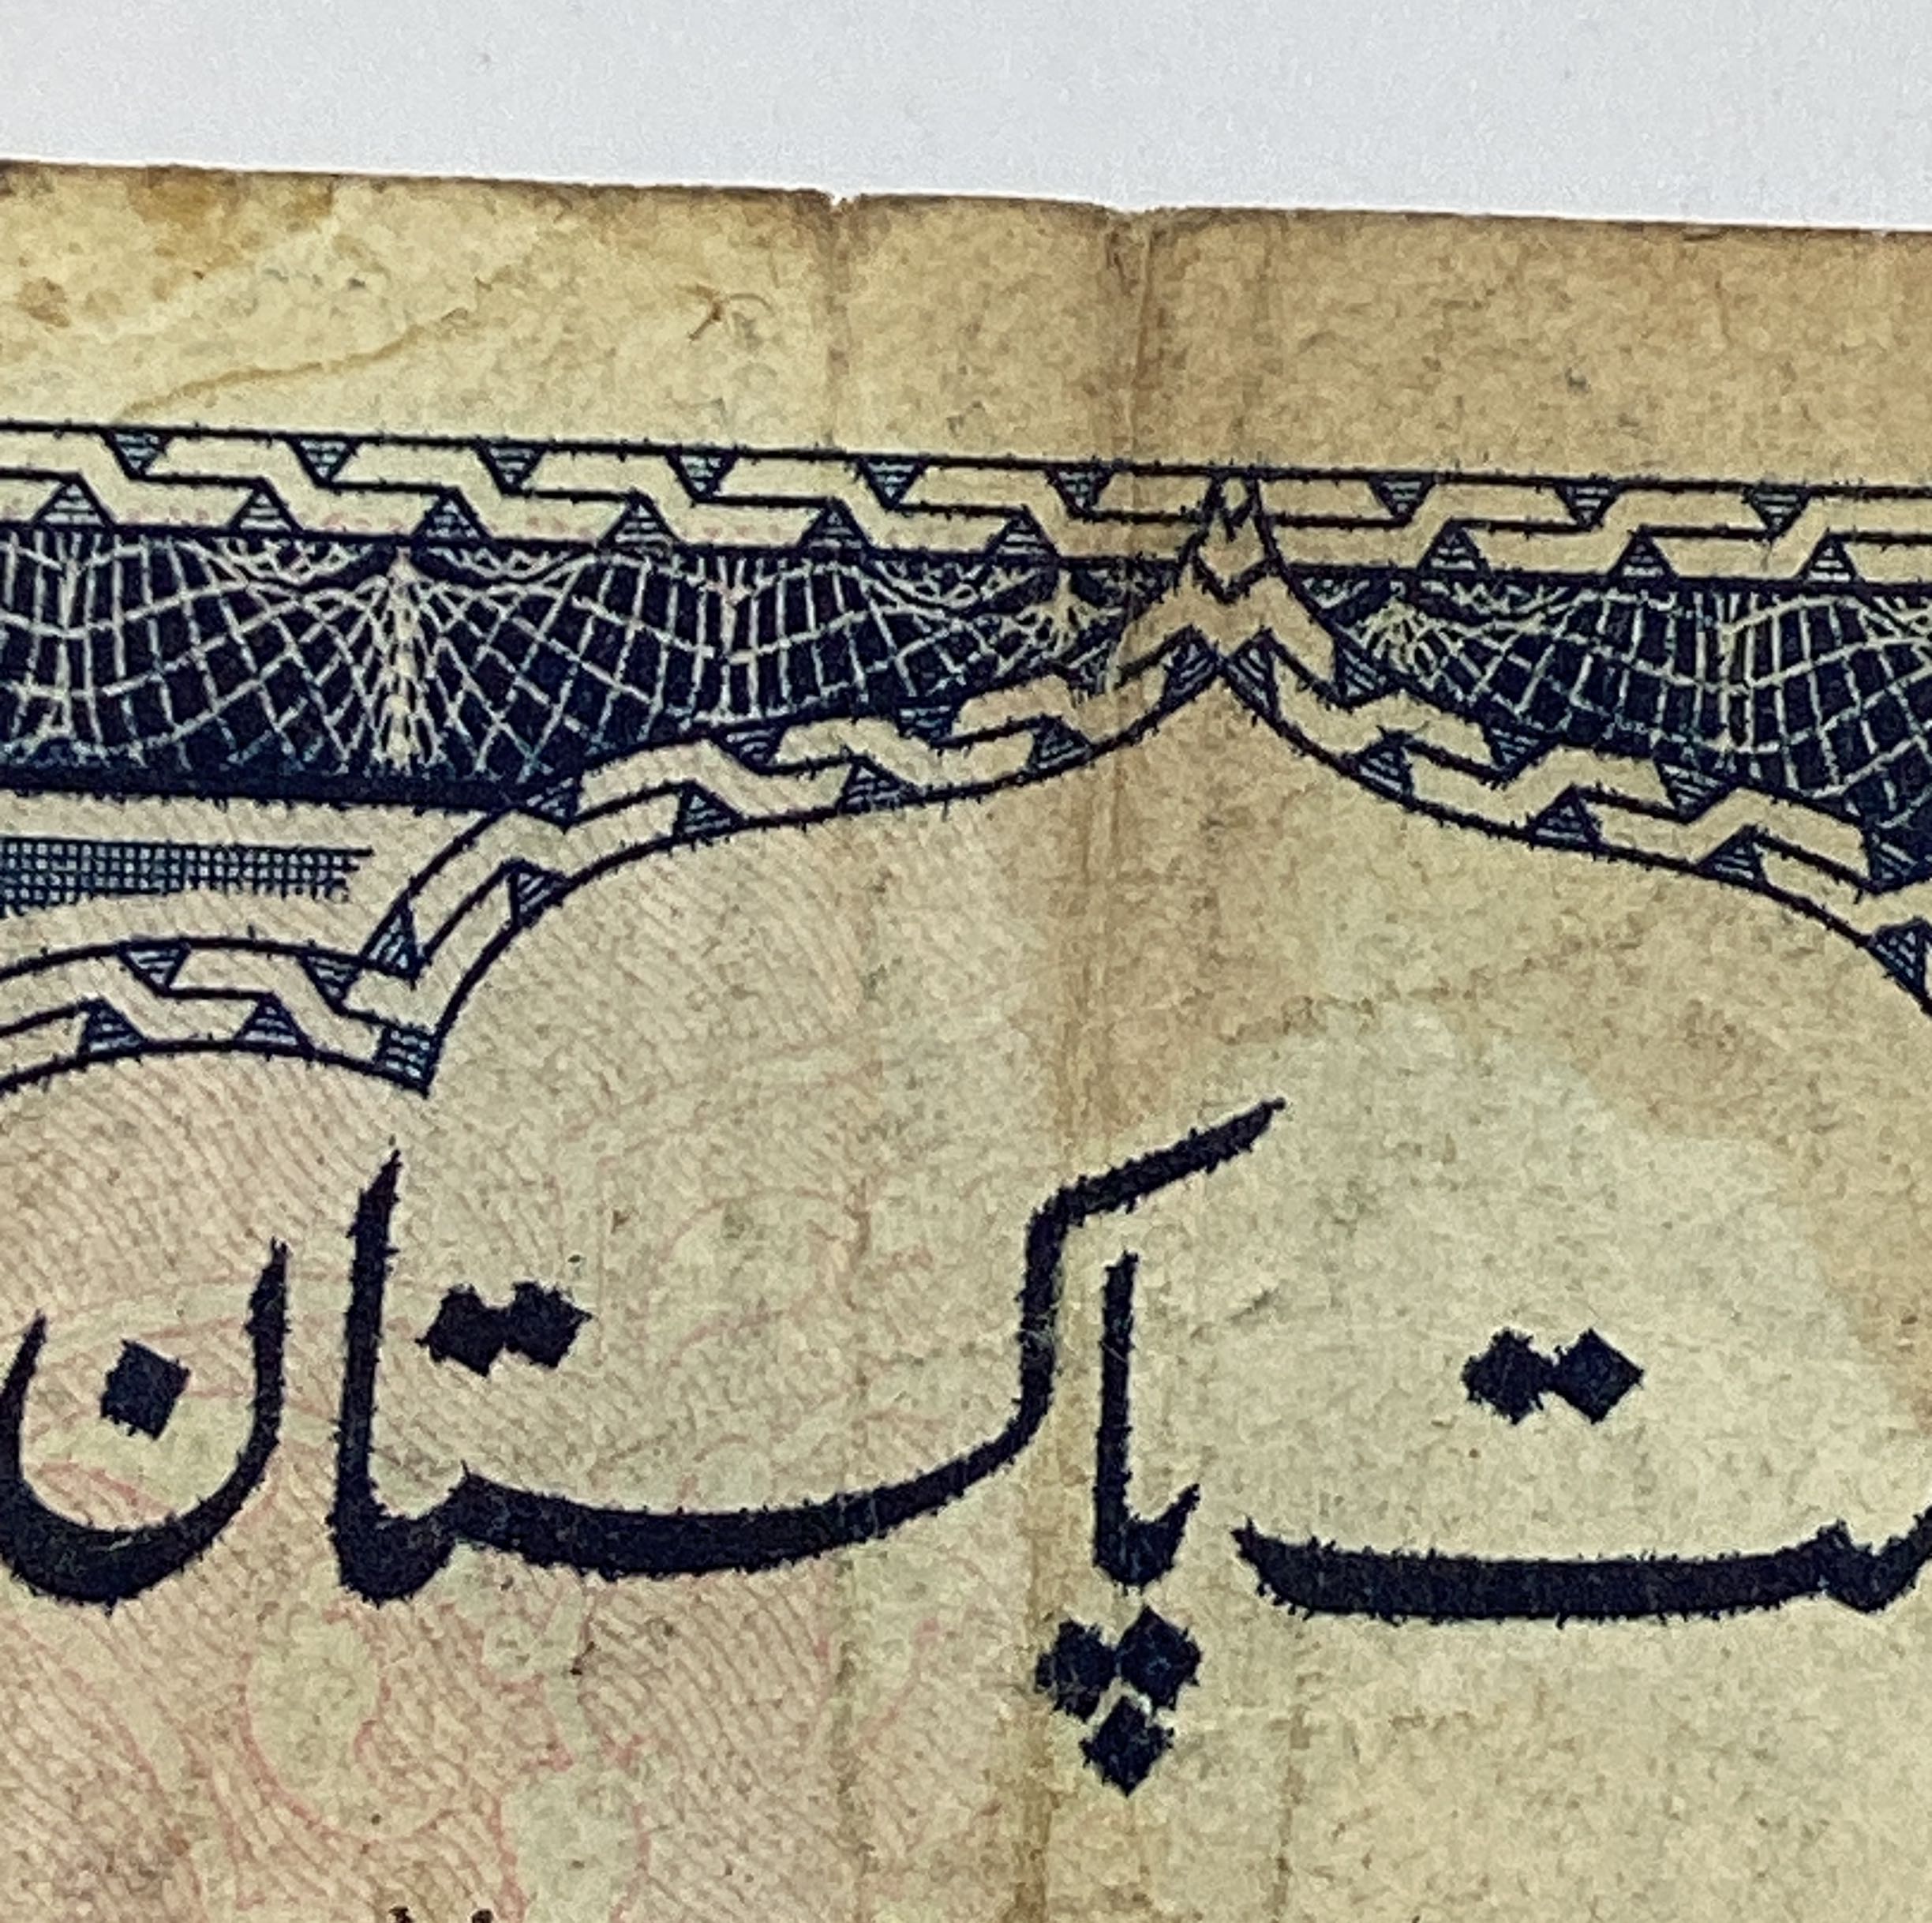 ت پاکستان